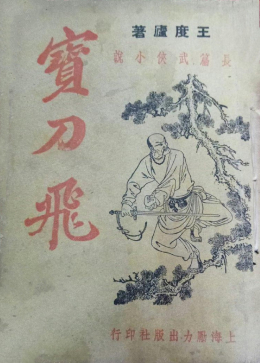 王度廬著
長篇武俠小說
寶刀飛
上海勵力出版社印行